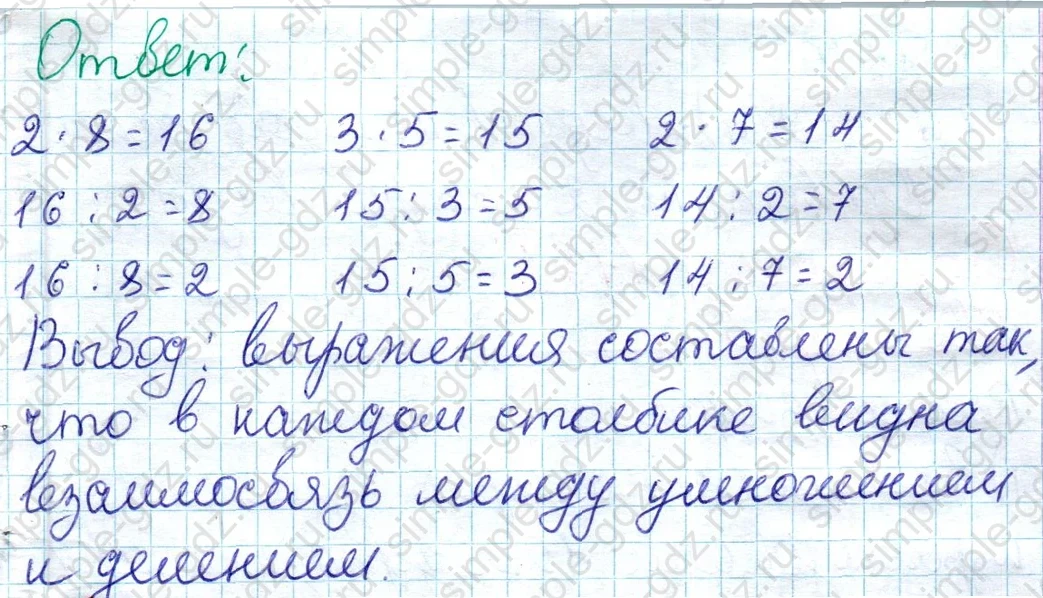 Ответ:
2 · 8 = 16 3 · 5 = 15 2 · 7 = 14
16 : 2 = 8 15 : 3 = 5 14 : 2 = 7
16 : 8 = 2 15 : 5 = 3 14 : 7 = 2
Вывод: выражения составлены так,
что в каждом столбике видна
взаимосвязь между умножением
и делением.
simple-gdz.ru